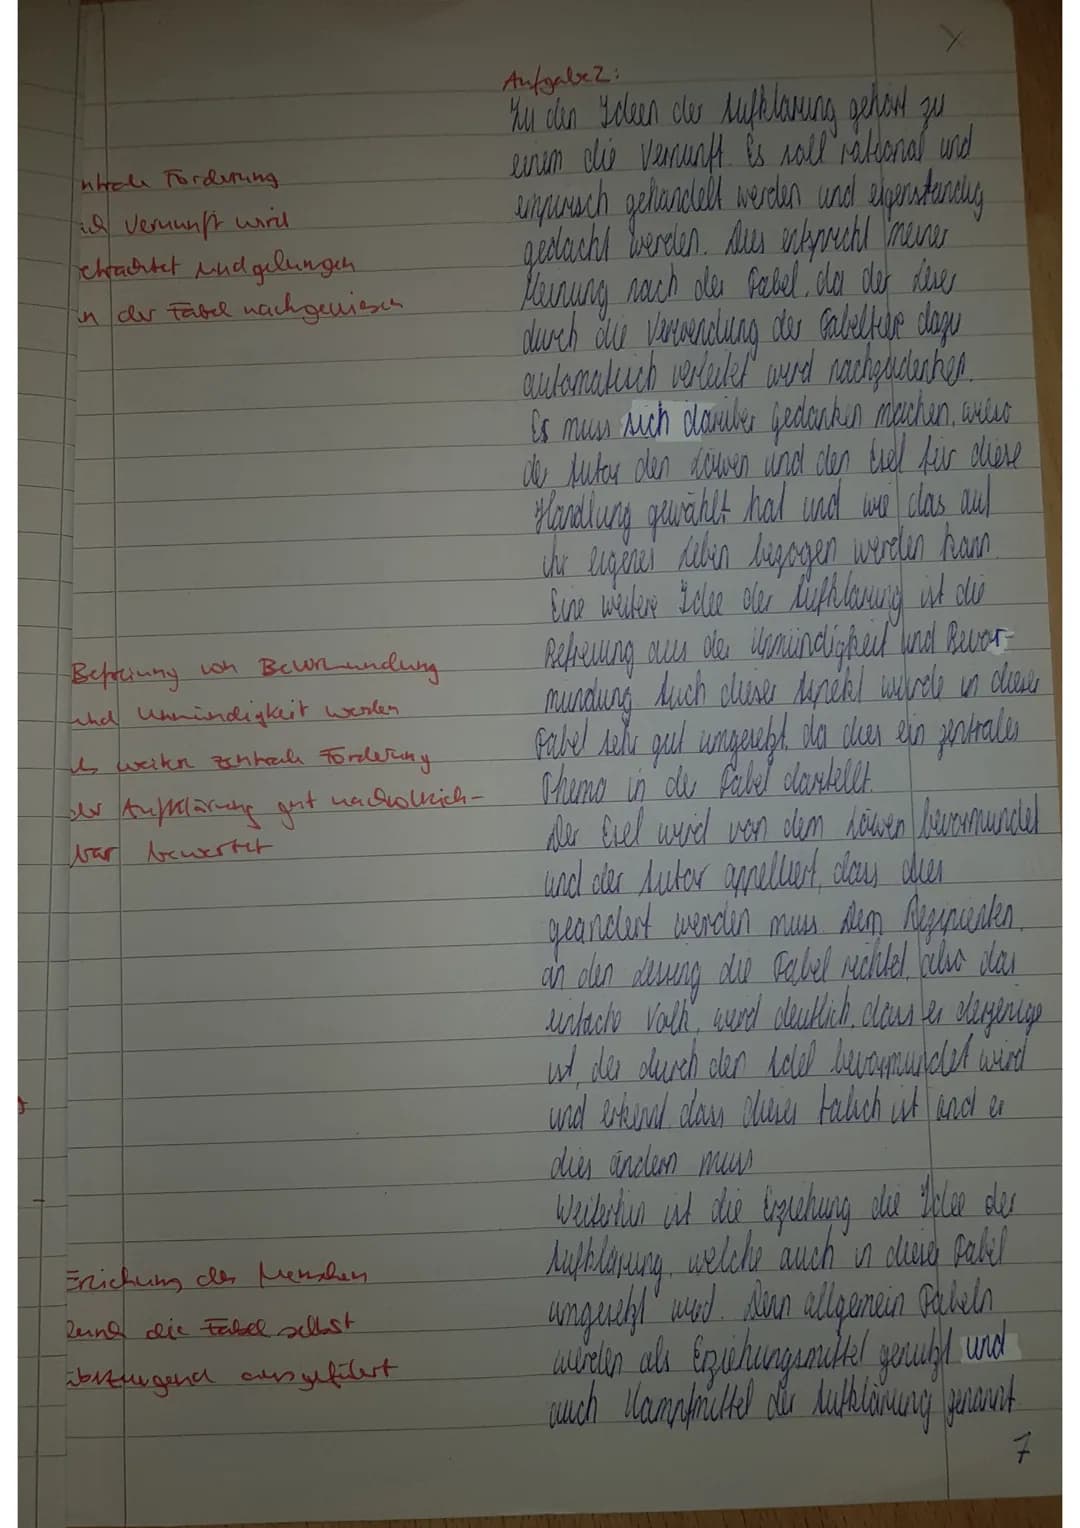 Aufgabe 2:
Zu den Ideen der Aufklärung gehört zu
einem die Vernunft. Es soll rational und
empirisch gehandelt werden und eigenständig
gedacht werden. Dies entspricht meiner
Meinung nach der Fabel, da der Leser
durch die Verwendung der Fabeltiere dazu
automatisch verleitet wird nachzudenken.
Es muss sich darüber gedanken machen, wieso
der Autor den Löwen und den Esel für diese
Handlung gewählt hat und wie das auf
ihr eigenes Leben bezogen werden kann.
Eine weitere Idee der Aufklärung ist die
Befreiung aus der Unmündigkeit und Bevor-
mundung. Auch dieser Aspekt wurde in dieser
Fabel sehr gut umgesetzt, da dies ein zentrales
Thema in der Fabel darstellt.
Der Esel wird von dem Löwen bevormundet
und der Autor appelliert, dass dies
geändert werden muss. Dem Rezipienten,
an den Lessing die Fabel richtet, also das
einfache Volk, wird deutlich, dass er derjenige
ist, der durch den Adel bevormundet wird
und erkennt, dass dieses falsch ist und er
dies ändern muss
Weiterhin ist die Erziehung die Idee der
Aufklärung, welche auch in dieser Fabel
umgesetzt wird. Denn allgemein Fabeln
werden als Erziehungsmittel genutzt und
auch Kampfmittel der Aufklärung genannt.
7
ntrale Forderung
Vernunft wird
chtet und gelungen
in der Fabel nachgewiesen
Befreiung von Bevormundung
und Unmündigkeit werden
ls weitere zentrale Forderung
der Aufklärung gut nachvollzieh-
bar bewertet
Erziehung des Menschen
durch die Fabel selbst
überzeugend ausgeführt